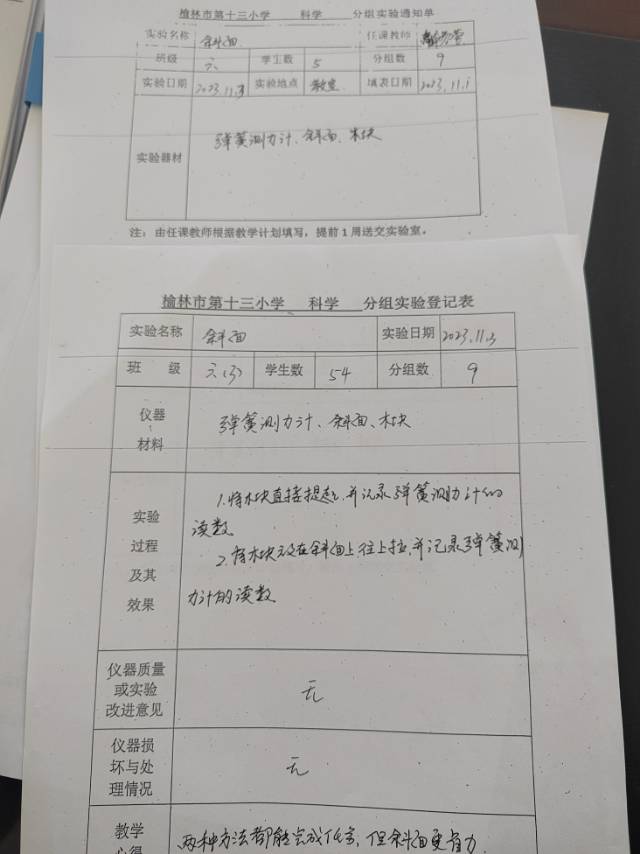 榆林市第十三小学 科学 分组实验通知单
实验名称 斜面 任课教师
班级 六 学生数 5 分组数 9
实验日期 2023.11.3 实验地点 教室 填表日期 2023.11.1
实验器材 弹簧测力计、斜面、木块
注：由任课教师根据教学计划填写，提前1周送交实验室。
榆林市第十三小学 科学 分组实验登记表
实验名称 斜面 实验日期 2023.11.3
班 级 六(3) 学生数 54 分组数 9
仪器
材料
弹簧测力计、斜面、木块
实验
过程
及其
效果
1.将木块直接提起,并记录弹簧测力计的
读数.
2.将木块放在斜面上往上拉,并记录弹簧测
力计的读数.
仪器质量
或实验
改进意见
无
仪器损
坏与处
理情况
无
教学
心得
两种方法都能完成任务,但斜面更省力.